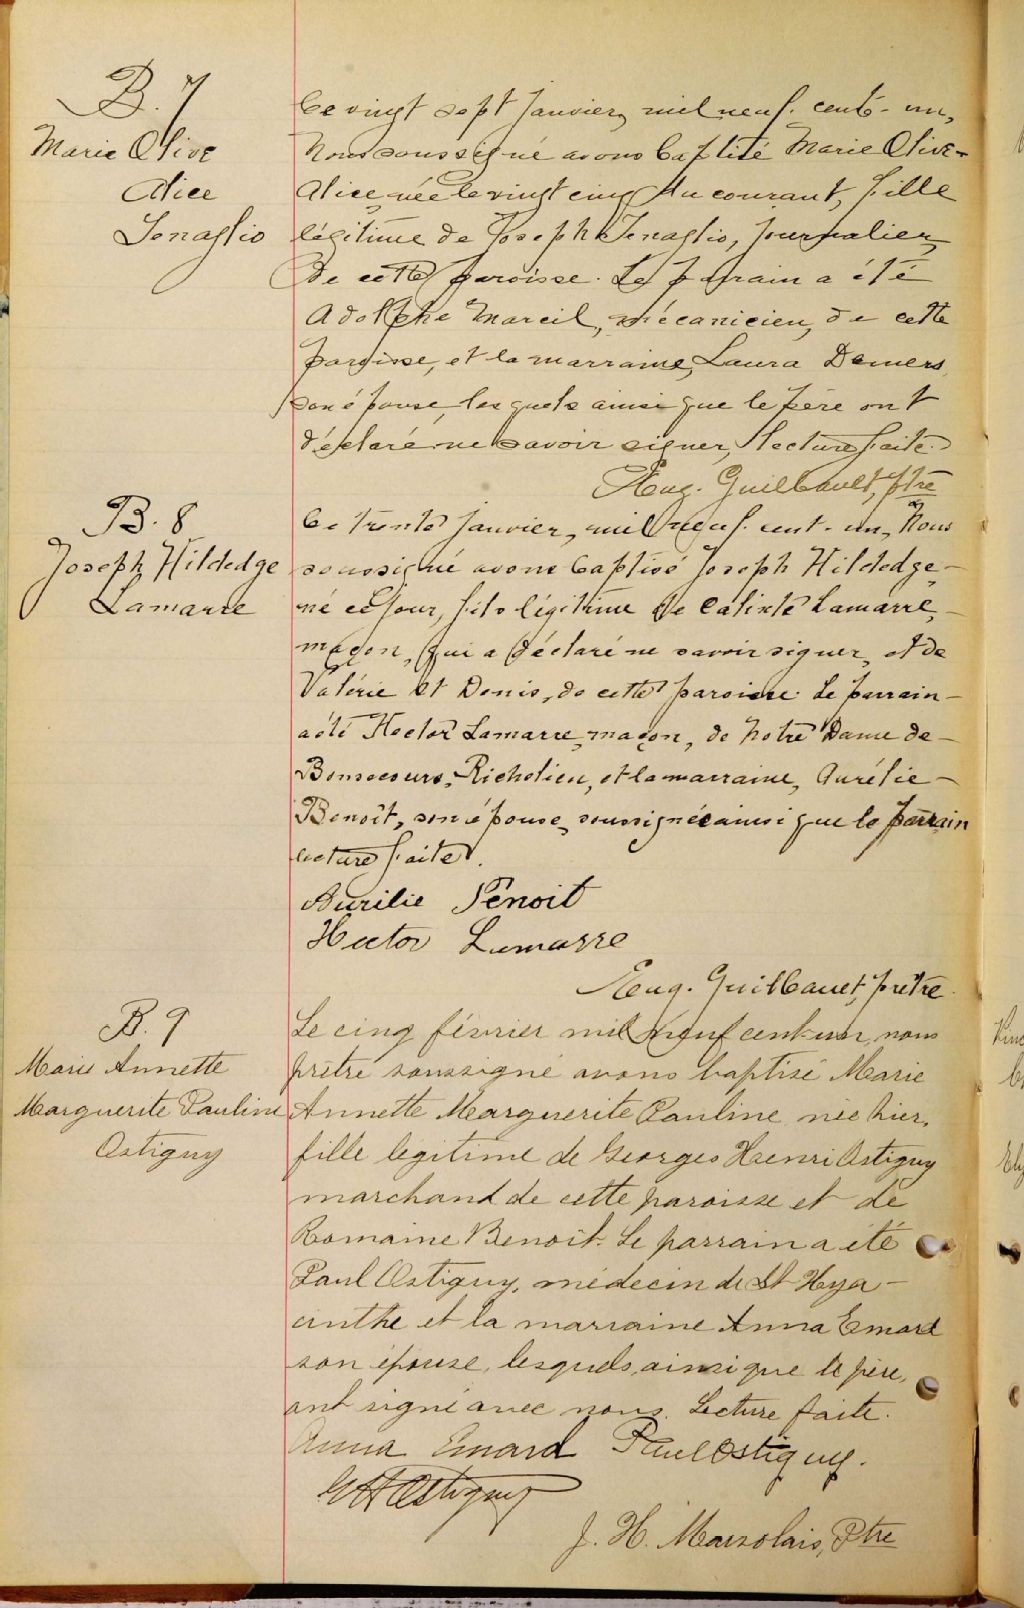 B. 7
Marie Olive
Alice
Senaglio
Ce vingt sept janvier, mil neuf. cent-un,
Nous soussigné avons baptisé Marie Olive-
Alice, née le vingt cinq du courant, fille
légitime de Joseph Senaglio, journalier,
de cette paroisse. Le parrain a été
Adolphe Mareil, mécanicien, de cette
paroisse, et la marraine, Laura Demers,
son épouse, lesquels ainsi que le père ont
déclaré ne savoir signer, lecture faite.
Eug. Guilbault, ptre
B. 8
Joseph Hildedge
Lamarre
Ce trente janvier, mil neuf. cent-un, Nous
soussigné avons baptisé Joseph Hildedge-
né ce jour, fils légitime de Calixte Lamarre,-
maçon, qui a déclaré ne savoir signer, et de
Valérie St Denis, de cette paroisse. Le parrain-
a été Hector Lamarre, maçon, de Notre Dame de-
Bonsecours, Richelieu, et la marraine, Aurélie-
Benoît, son épouse, soussignée ainsi que le parrain
lecture faite.
Aurilie Benoit
Hector Lamarre
Eug. Guilbault, prêtre.
B. 9
Marie Annette
Marguerite Pauline
Ostiguy
Le cinq février mil neuf cent-un, nous
prêtre soussigné avons baptisé Marie
Annette Marguerite Pauline, née hier,
fille légitime de Georges Henri Ostiguy
marchand de cette paroisse et de
Romaine Benoît. Le parrain a été
Paul Ostiguy, médecin de St Hya-
cinthe et la marraine Anna Emard
son épouse, lesquels, ainsi que le père,
ont signé avec nous. Lecture faite.
Anna Emard Paul Ostiguy.
GH Ostiguy
J. H. Marsolais, Ptre